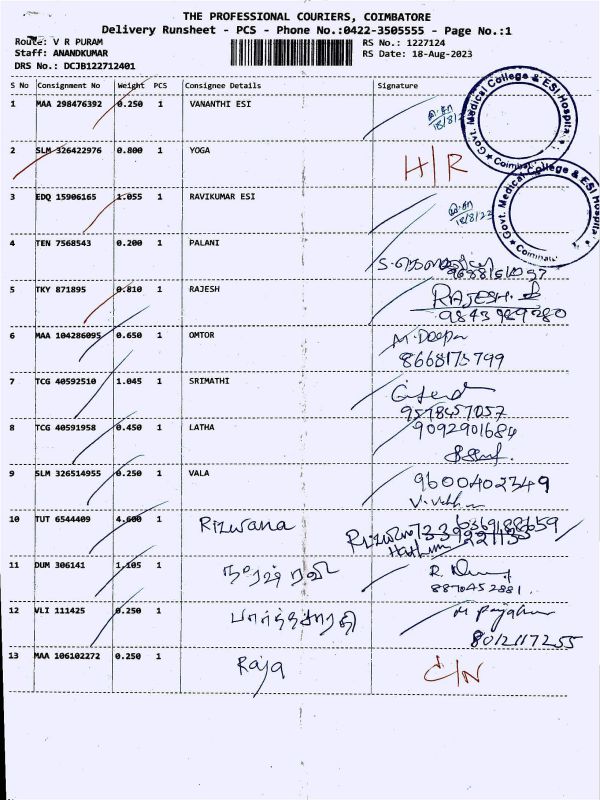 THE PROFESSIONAL COURIERS, COIMBATORE
Delivery Runsheet - PCS - Phone No.:0422-3505555 - Page No.:1
Route: V R PURAM
RS No.: 1227124
Staff: ANANDKUMAR
RS Date: 18-Aug-2023
DRS No.: DCJB122712401
S No Consignment No Weight PCS Consignee Details Signature
1 MAA 298476392 0.250 1 VANANTHI ESI
18/8/23
Govt. Medical College & ESI Hospital
Coimbatore
2 SLM 326422976 0.800 1 YOGA H/R
3 EDQ 15906165 1.055 1 RAVIKUMAR ESI
18/8/23
Govt. Medical College & ESI Hospital
Coimbatore
4 TEN 7568543 0.200 1 PALANI
5 TKY 871895 0.810 1 RAJESH RAJESH.
6 MAA 104286095 0.650 1 OMTOR M.Deepa
8668175799
7 TCG 40592510 1.045 1 SRIMATHI
9578457057
8 TCG 40591958 0.450 1 LATHA 9092901684
9 SLM 326514955 0.250 1 VALA 9600402349
10 TUT 6544409 4.600 1 Rizwana
11 DUM 306141 1.105 1
8870452881
12 VLI 111425 0.250 1 பார்த்தசாரதி
8012117255
13 MAA 106102272 0.250 1 Raja C/N